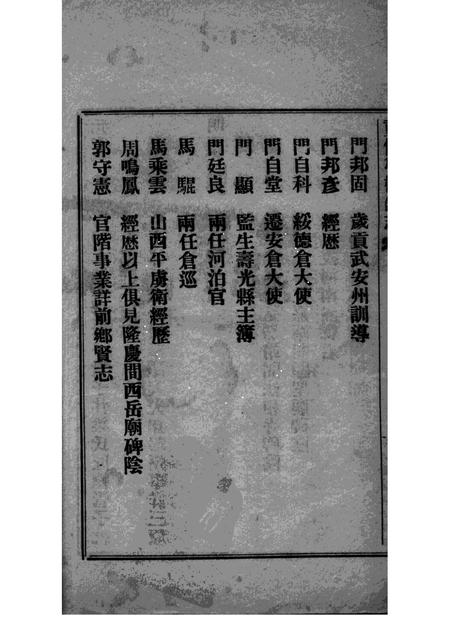 門邦固　歲貢武安州訓導
門邦彥　經歷
門自科　綏德倉大使
門自堂　遷安倉大使
門　顯　監生壽光縣主簿
門廷良　兩任河泊官
馬　騉　兩任倉巡
馬乘雲　山西平虜衛經歷
周鳴鳳　經歷以上俱見隆慶間西岳廟碑陰
郭守憲　官階事業詳前鄉賢志